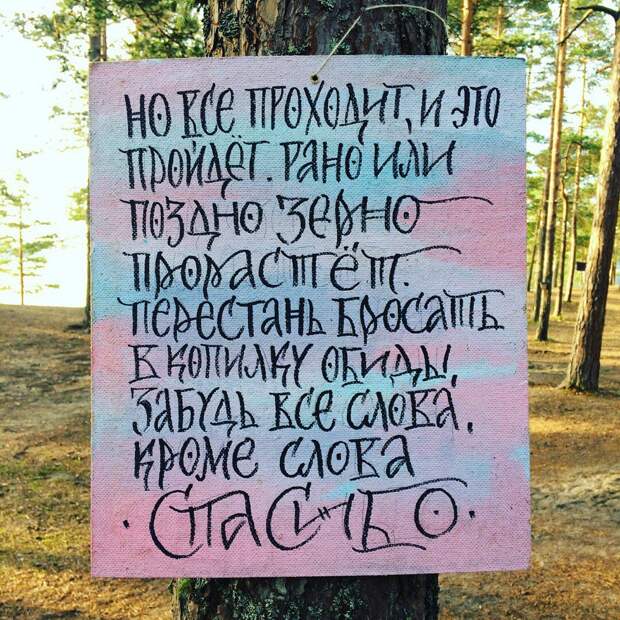 но все проходит, и это
пройдёт. Рано или
поздно зерно
прорастёт.
Перестань бросать
в копилку обиды,
забудь все слова,
кроме слова
·Спасибо·